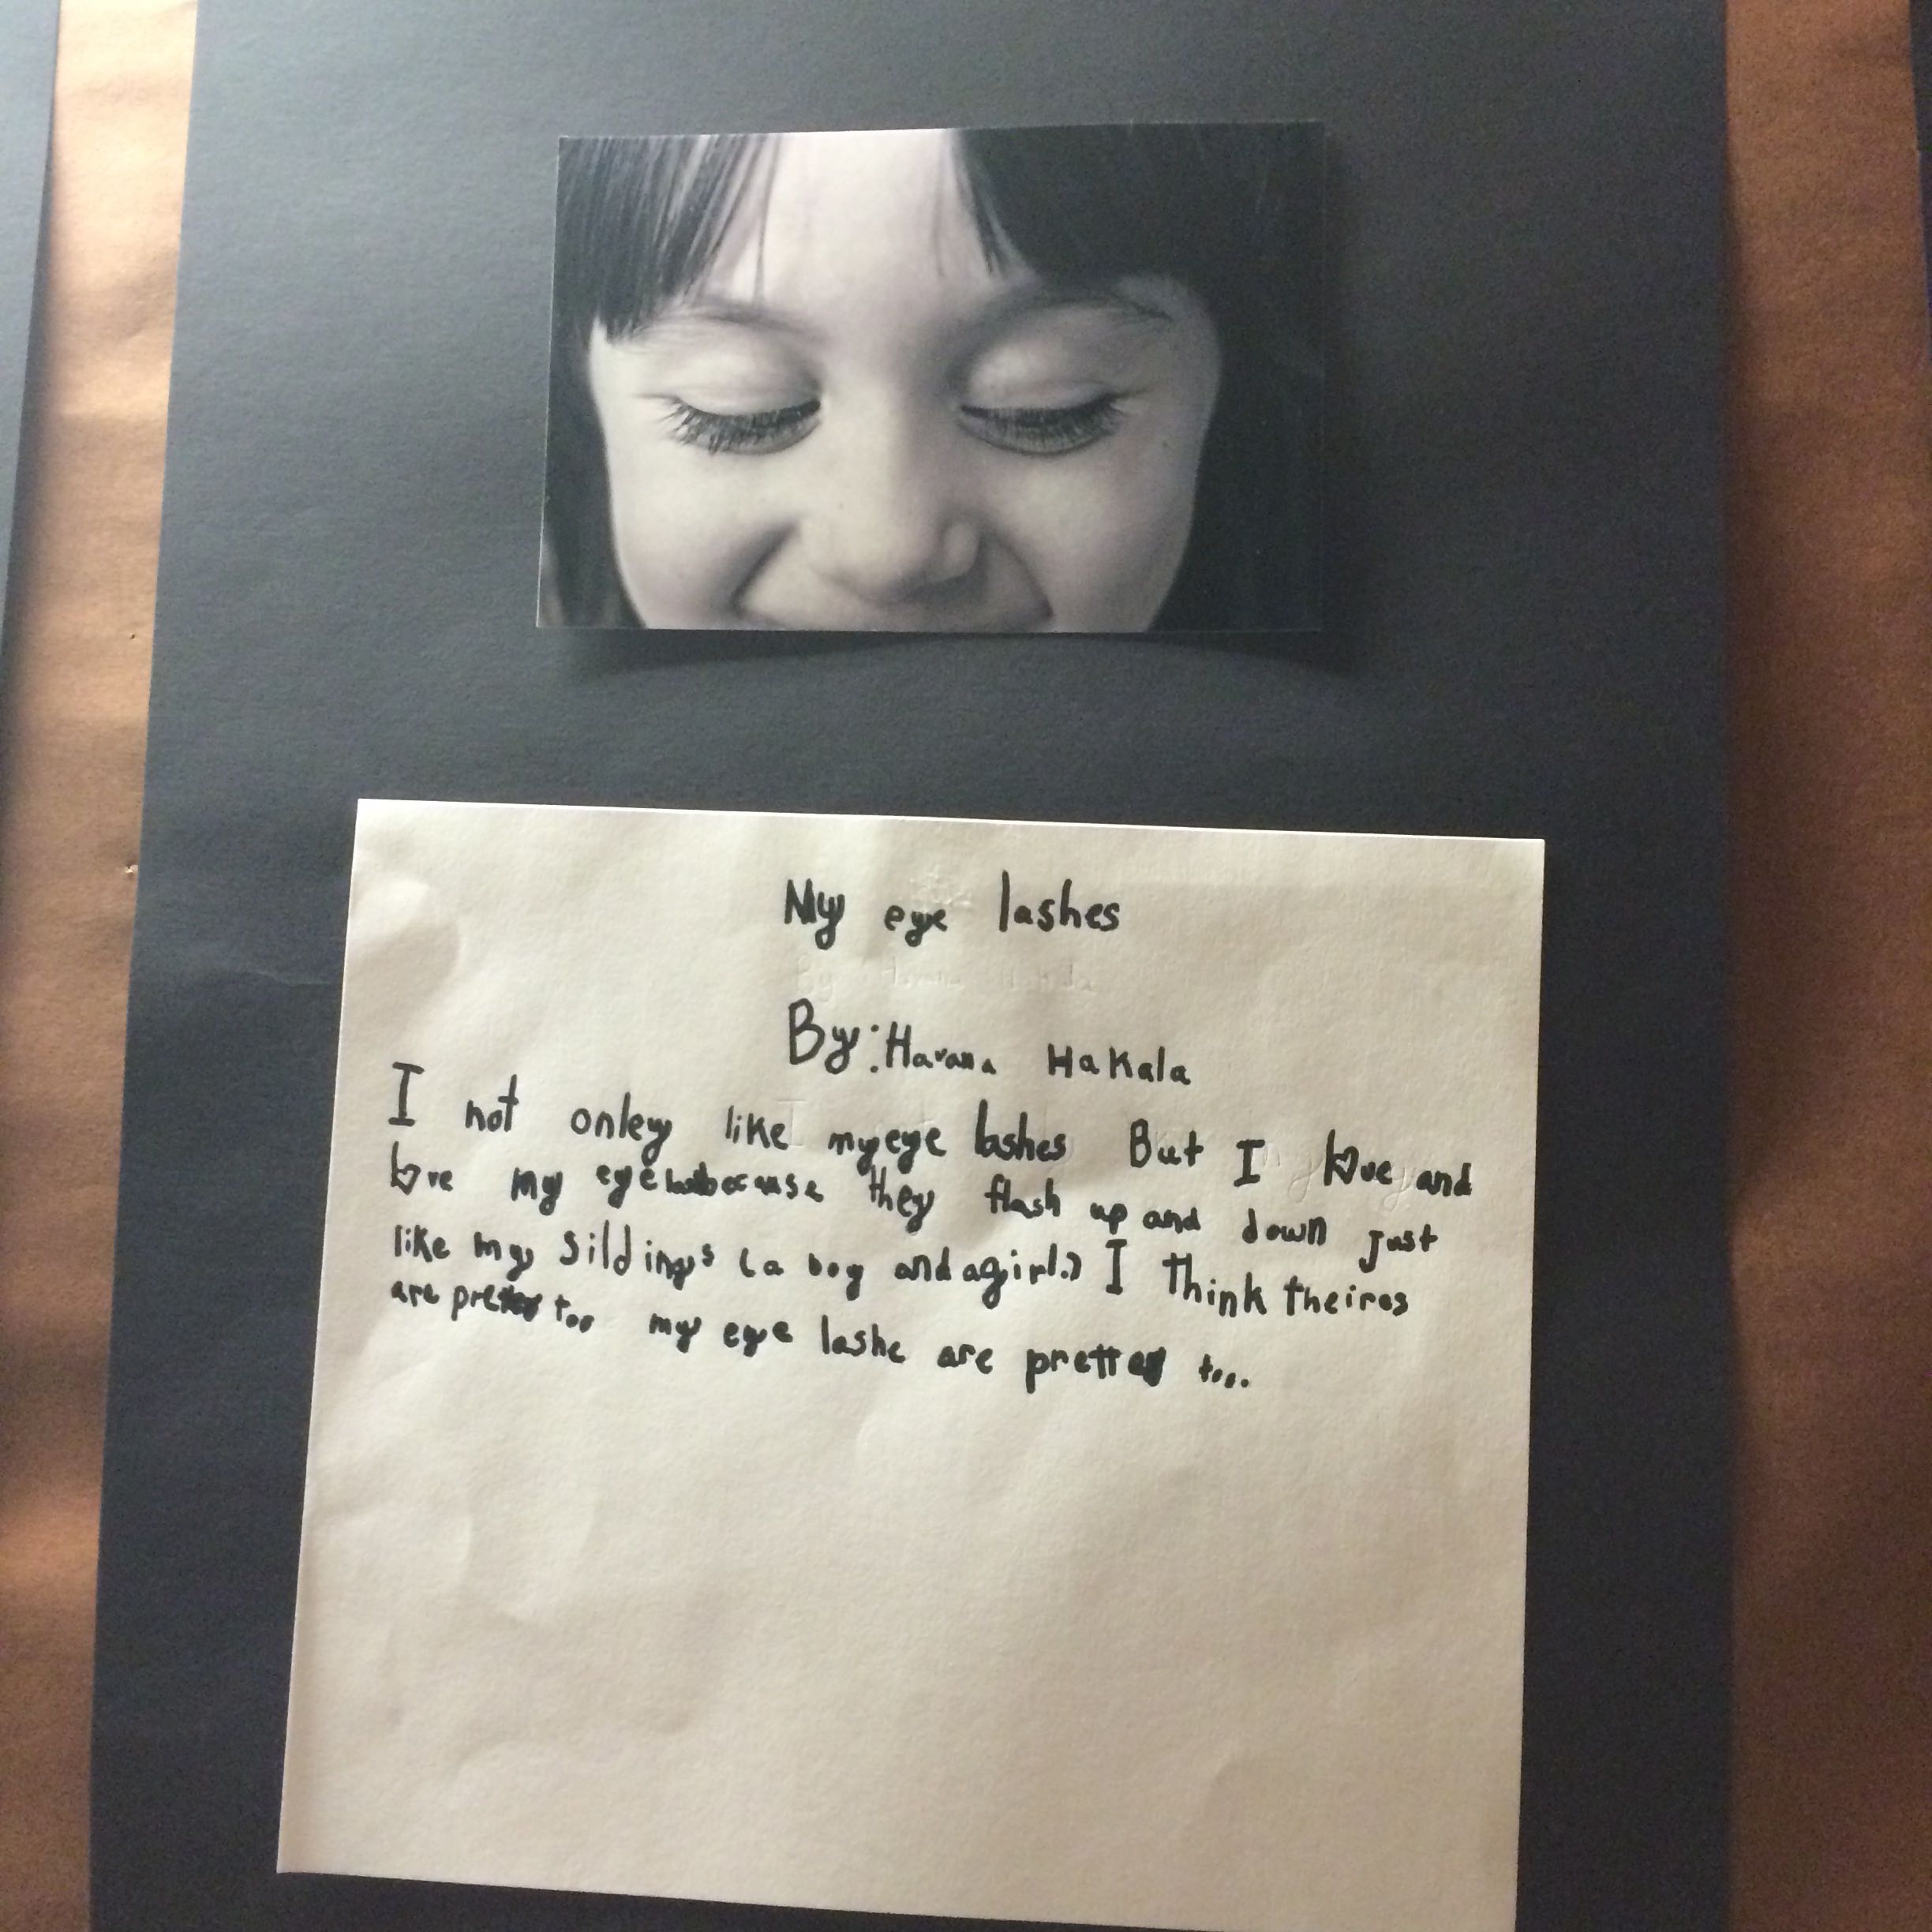 My eye lashes
By: Havana Hakala
I not onley like my eye lashes But I love and
love my eye because they flash up and down just
like my sildings (a boy and a girl.) I think theires
are too my eye lashe are prettey too.